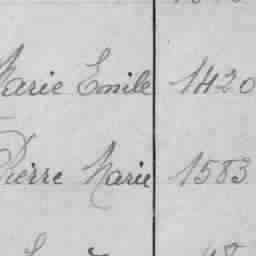 Marie Emile 1420
Pierre Marie 1583